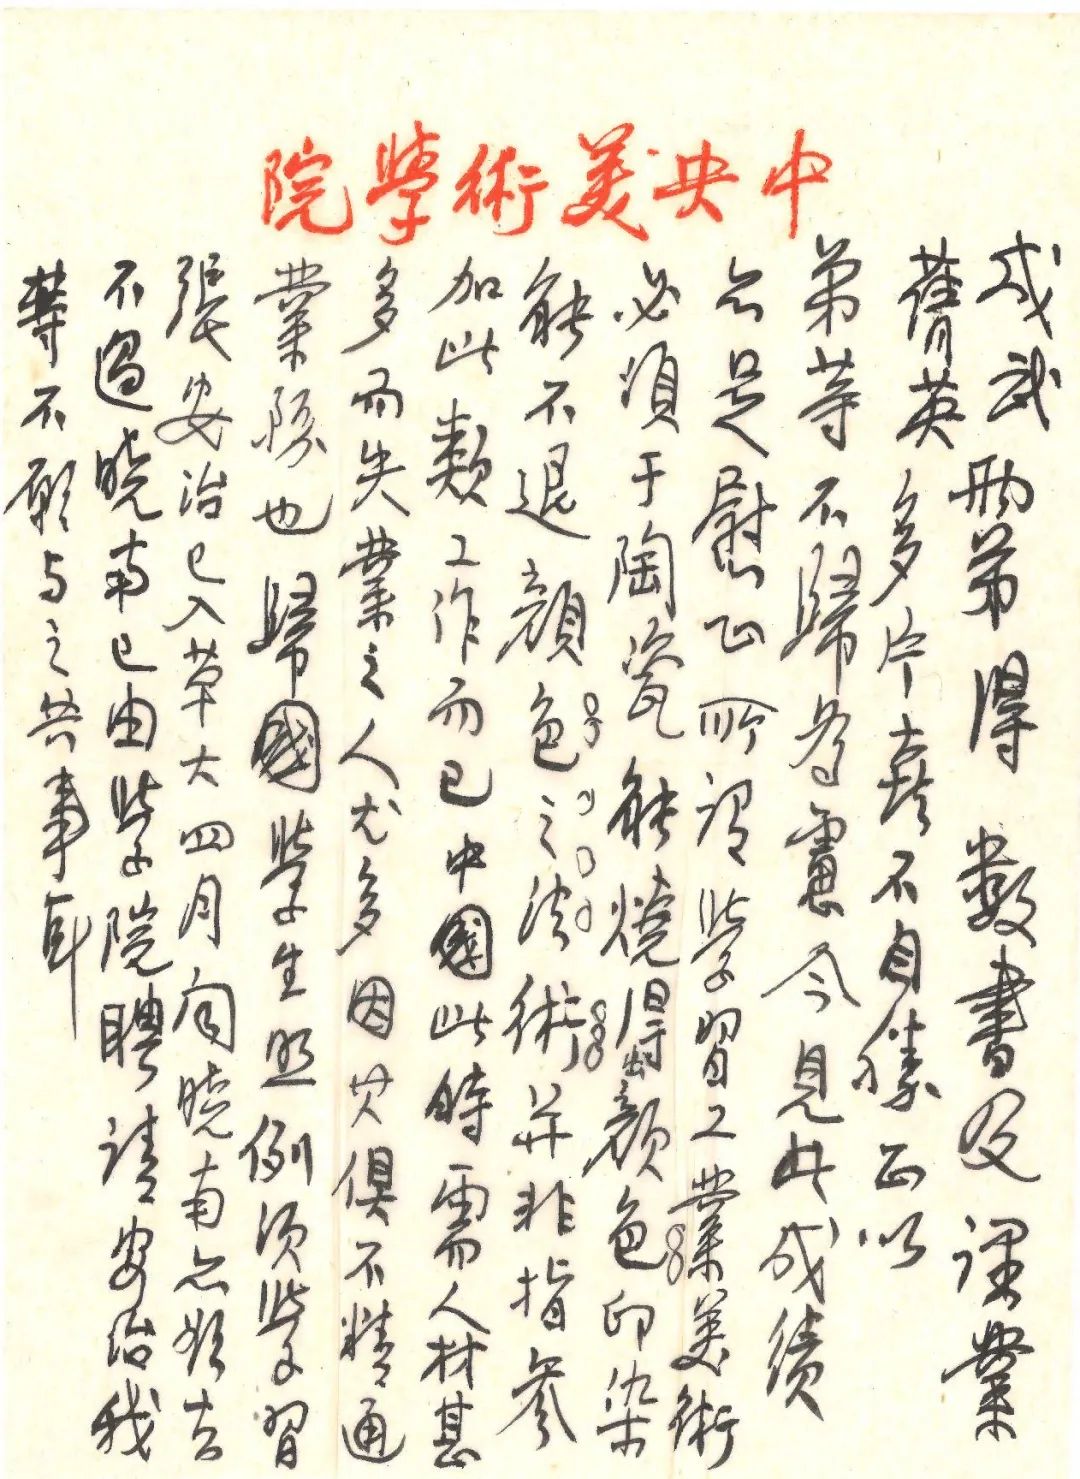 中央美術學院
成武 兩弟得 數書及課業
舊英多片喜不自勝正以
弟等不歸為慮今見此成績
亦足慰也所謂學習工業美術
必須于陶瓷能燒得出顏色印染
能不退顏色之法術并非指參
加此類工作而已中國此時需人材甚
多而失業之人尤多因其俱不精通
業務也歸國學生照例須學習
張安治已入革大四月向曉南亦將去
不過曉南已由學院聘請安治我
等不願与之共事耳